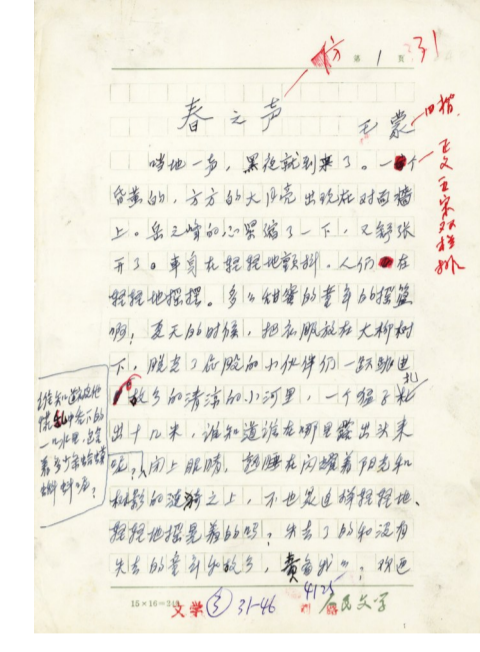 仿
第 1 页
春之声
王蒙
口楷.
正文五宋双栏排
咣地一声，黑夜就到来了。一个
昏黄的，方方的大月亮出现在对面墙
上。岳之峰的心紧缩了一下，又舒张
开了。车身在轻轻地颤抖。人们在
轻轻地摇摆。多么甜蜜的童年的摇篮
啊！夏天的时候，把衣服放在大柳树
下，脱光了屁股的小伙伴们一跃跳进
故乡的清凉的小河里，一个猛子扎
出十几米，谁知道谁在哪里露出头来
呢？闭上眼睛，躺睡在闪耀着阳光和
树影的涟漪之上，不也是这样轻轻地、
轻轻地摇晃着的吗？失去了的和没有
失去的童年和故乡，责备我
谁知道被他
慌乱中吞下的
一口水里，包含
着多少条蛤蟆
蝌蚪呢？
15×16=240
文学 ③ 31-46
4125
人民文学